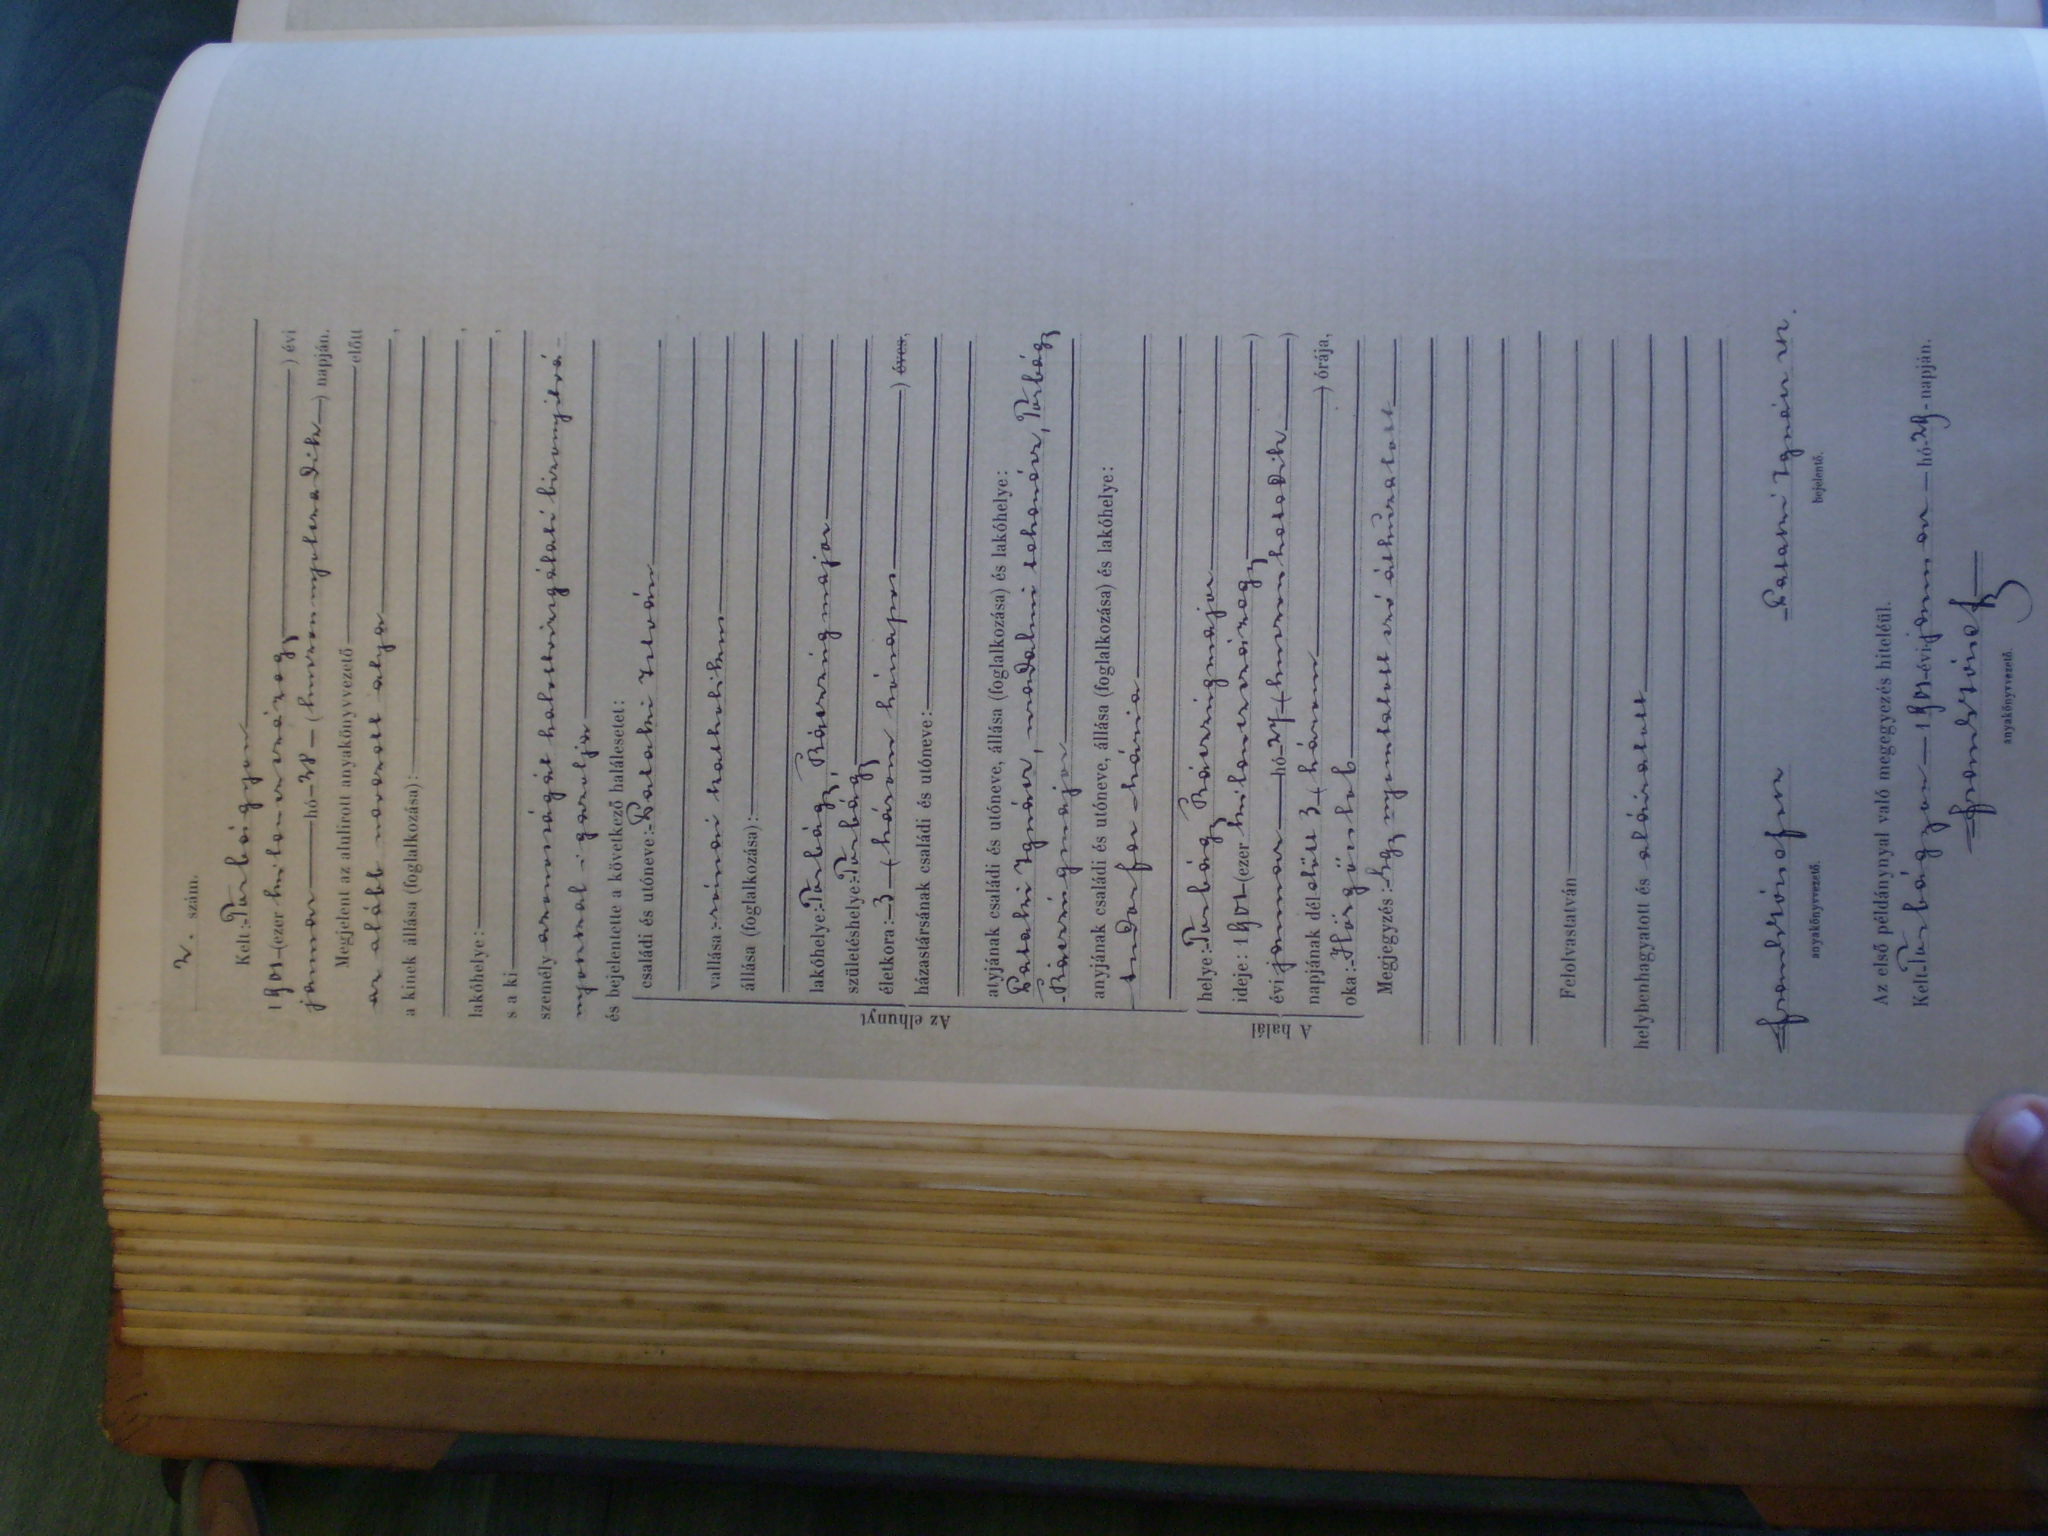 2. szám.
Kelt: Torbágyon
1901 (ezer kilenczszázegy) évi
január hó 28 (huszonnyolczadik) napján.
Megjelent az alulirott anyakönyvezető előtt
az alább nevezett atya,
a kinek állása (foglalkozása):
lakóhelye:
s a ki
személy azonosságát halottvizsgálati bizonyitvá-
nyonnal igazolja
és bejelentette a következő halálesetet:
Az elhunyt
családi és utóneve: Patatni István
vallása: római katholikus
állása (foglalkozása):
lakóhelye: Torbágy, Ráczzúgmajor
születéshelye: Torbágy
életkora: 3 (három hónapos) éves,
házastársának családi és utóneve:
atyjának családi és utóneve, állása (foglalkozása) és lakóhelye:
Ignácz, uradalmi tehenész, Torbágy
anyjának családi és utóneve, állása (foglalkozása) és lakóhelye:
Mária
A halál
helye: Torbágy
ideje: 1901 (ezer kilenczszázegy)
évi január hó 27 (huszonhetedik)
napjának dél előtt 3 (három) órája,
oka: Hörgőhurut
Megjegyzés: Egy nyomtatott szó áthúzatott
Felolvastatván
helybenhagyatott és aláiratott
anyakönyvvezető.
Ignácz
bejelentő.
Az első példánynyal való megegyezés hiteléül.
Kelt Torbágyon 1901 évi január hó 28 napján.
anyakönyvvezető.